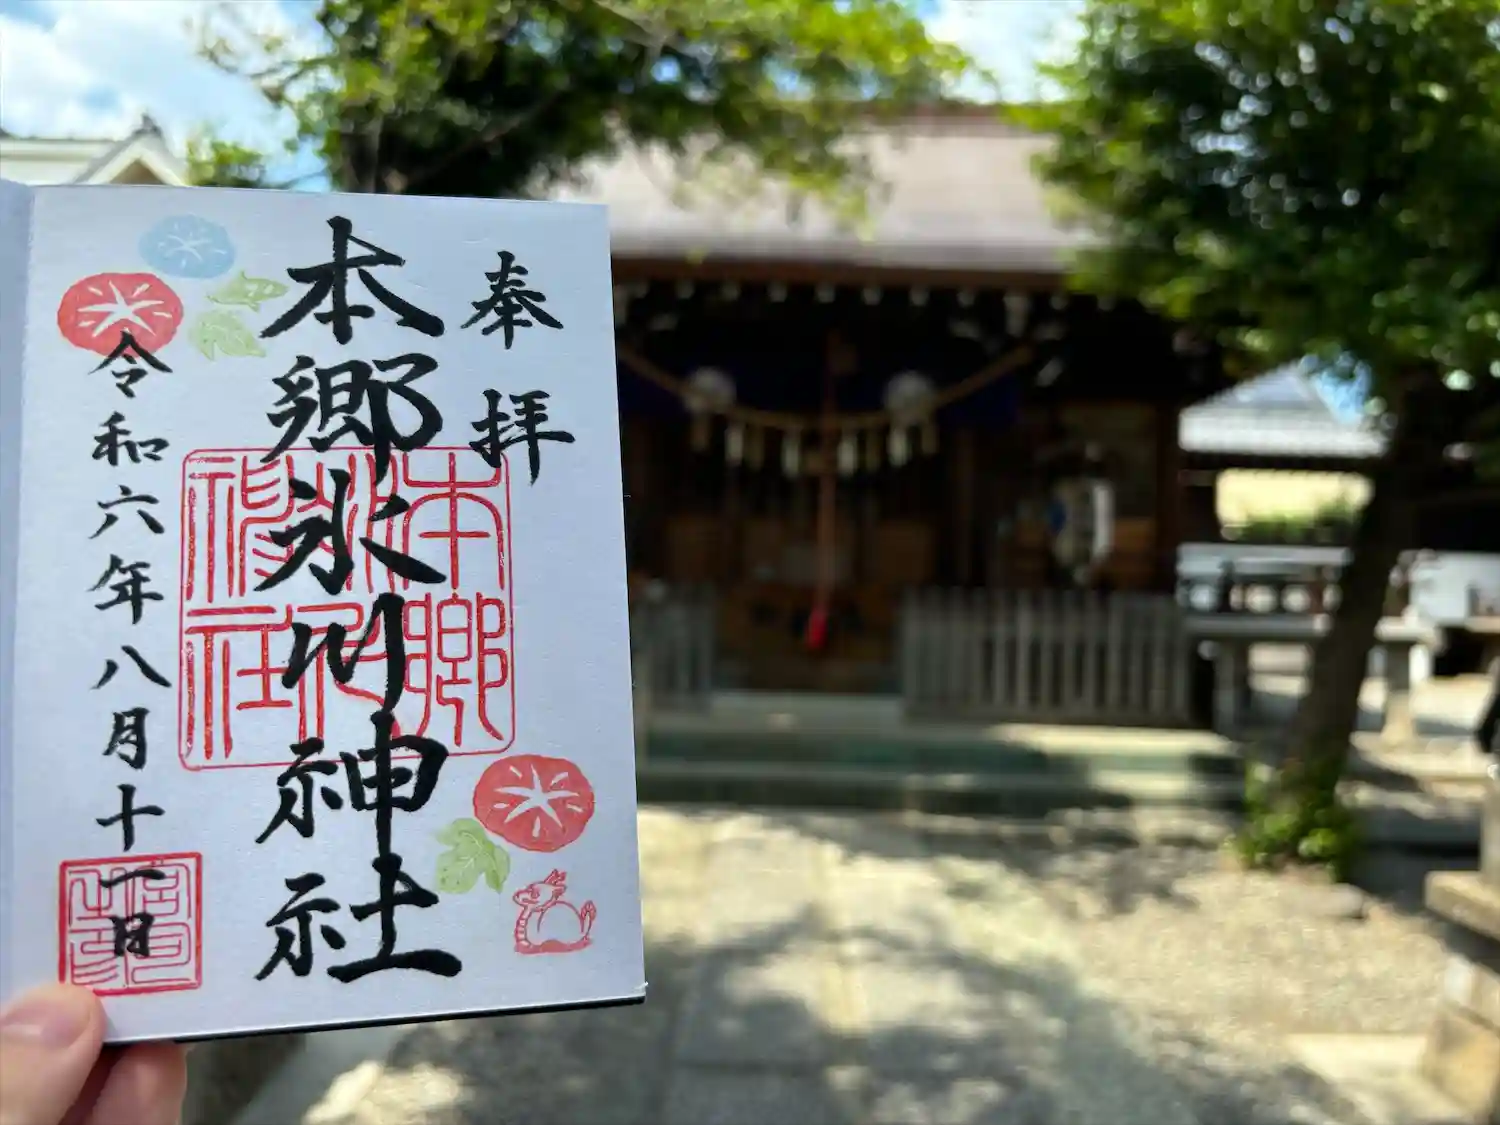 奉拝
本郷氷川神社
令和六年八月十一日
本郷
氷川
神社